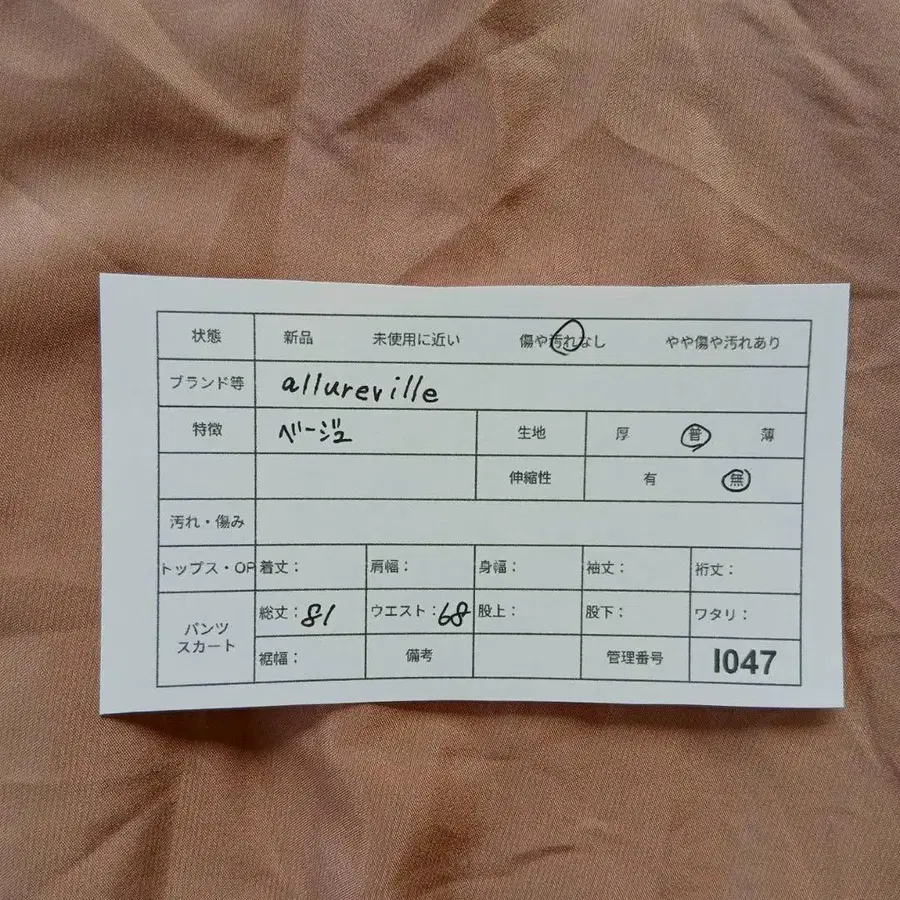 状態 新品 未使用に近い 傷や汚れなし やや傷や汚れあり
ブランド等 allureville
特徴 ベージュ 生地 厚 普 薄
伸縮性 有 無
汚れ・傷み
トップス・OP 着丈： 肩幅： 身幅： 袖丈： 裄丈：
パンツ スカート 総丈：81 ウエスト：68 股上： 股下： ワタリ：
裾幅： 備考 管理番号 I047